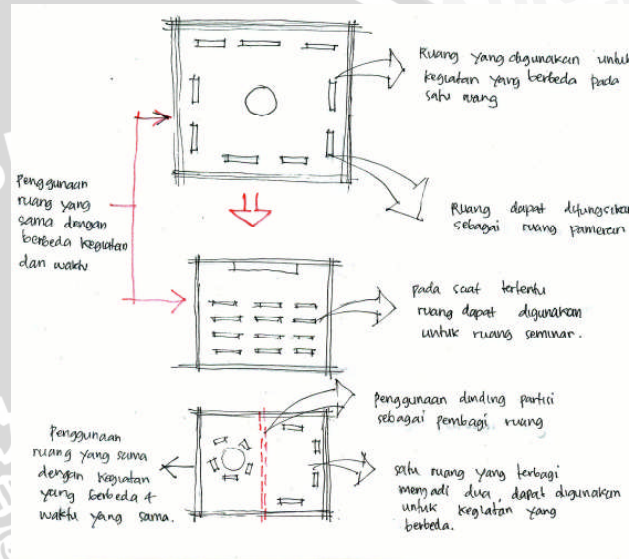 Ruang yang digunakan untuk
kegiatan yang berbeda pada
satu ruang
Penggunaan
ruang yang
sama dengan
berbeda kegiatan
dan waktu
Ruang dapat difungsikan
sebagai ruang pameran
pada saat tertentu
ruang dapat digunakan
untuk ruang seminar.
Penggunaan dinding partisi
sebagai pembagi ruang
Penggunaan
ruang yang sama
dengan kegiatan
yang berbeda +
waktu yang sama.
satu ruang yang terbagi
menjadi dua, dapat digunakan
untuk kegiatan yang
berbeda.